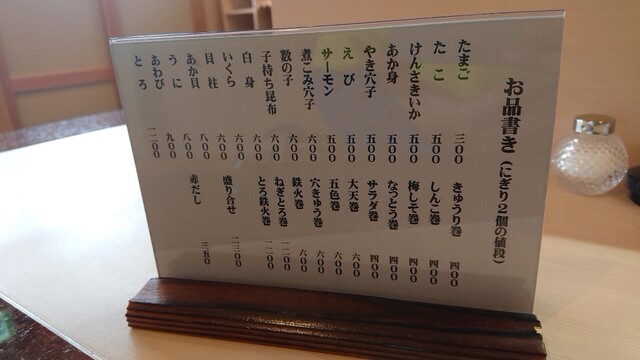 お品書き(にぎり2個の値段)
たまご 三〇〇
たこ 五〇〇
けんさきいか 五〇〇
あか身 五〇〇
やき穴子 五〇〇
えび 五〇〇
サーモン 五〇〇
煮こみ穴子 六〇〇
数の子 六〇〇
子持ち昆布 六〇〇
白身 六〇〇
いくら 六〇〇
貝柱 六〇〇
あか貝 八〇〇
うに 八〇〇
あわび 九〇〇
とろ 一二〇〇
きゅうり巻 四〇〇
しんこ巻 四〇〇
梅しそ巻 四〇〇
なっとう巻 四〇〇
サラダ巻 四〇〇
大天巻 六〇〇
五色巻 六〇〇
穴きゅう巻 六〇〇
鉄火巻 六〇〇
ねぎとろ巻
とろ鉄火巻
盛り合せ 二三〇〇
赤だし 三五〇